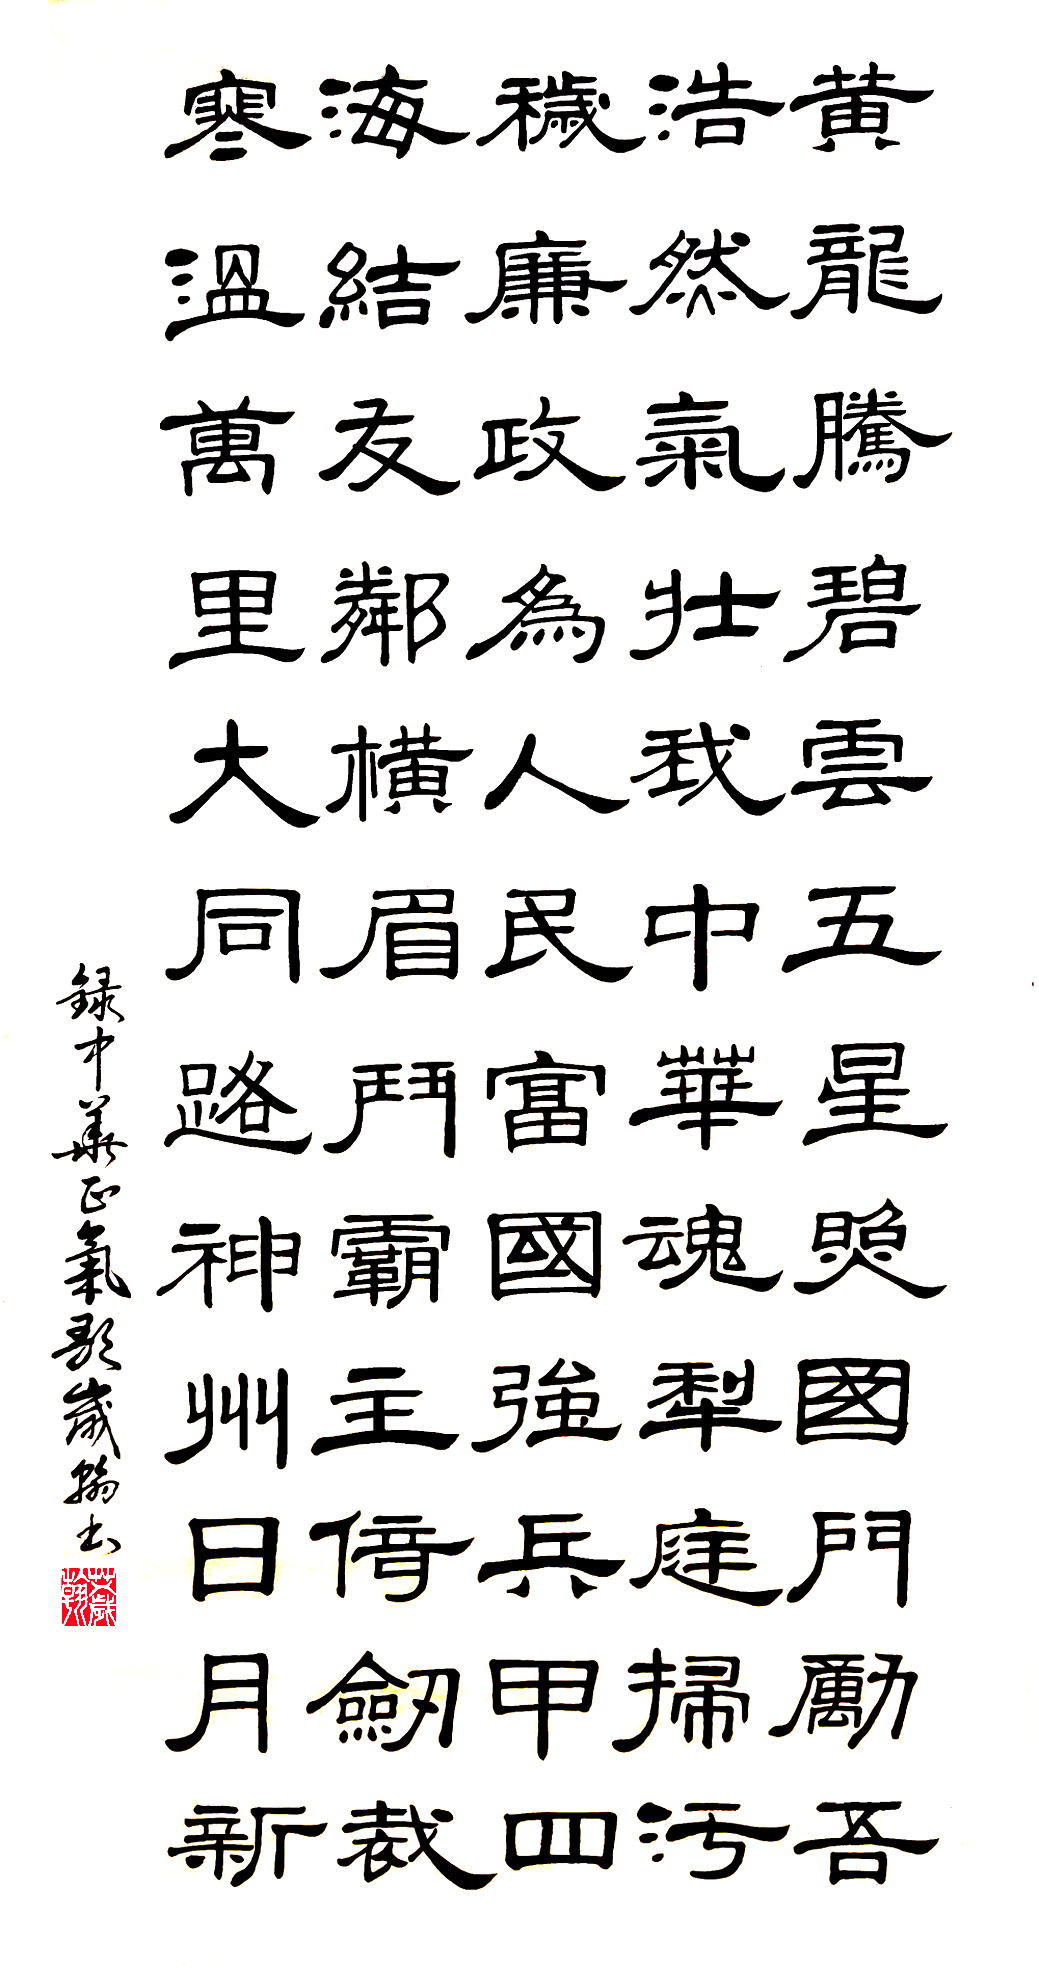 黄龍騰碧雲五星照國門勵吾
浩然氣壯我中華魂犁庭掃污
穢廉政為人民富國強兵甲四
海結友鄰横眉鬥霸主倚劒裁
寒溫萬里大同路神州日月新
録中華正氣歌歲翰书